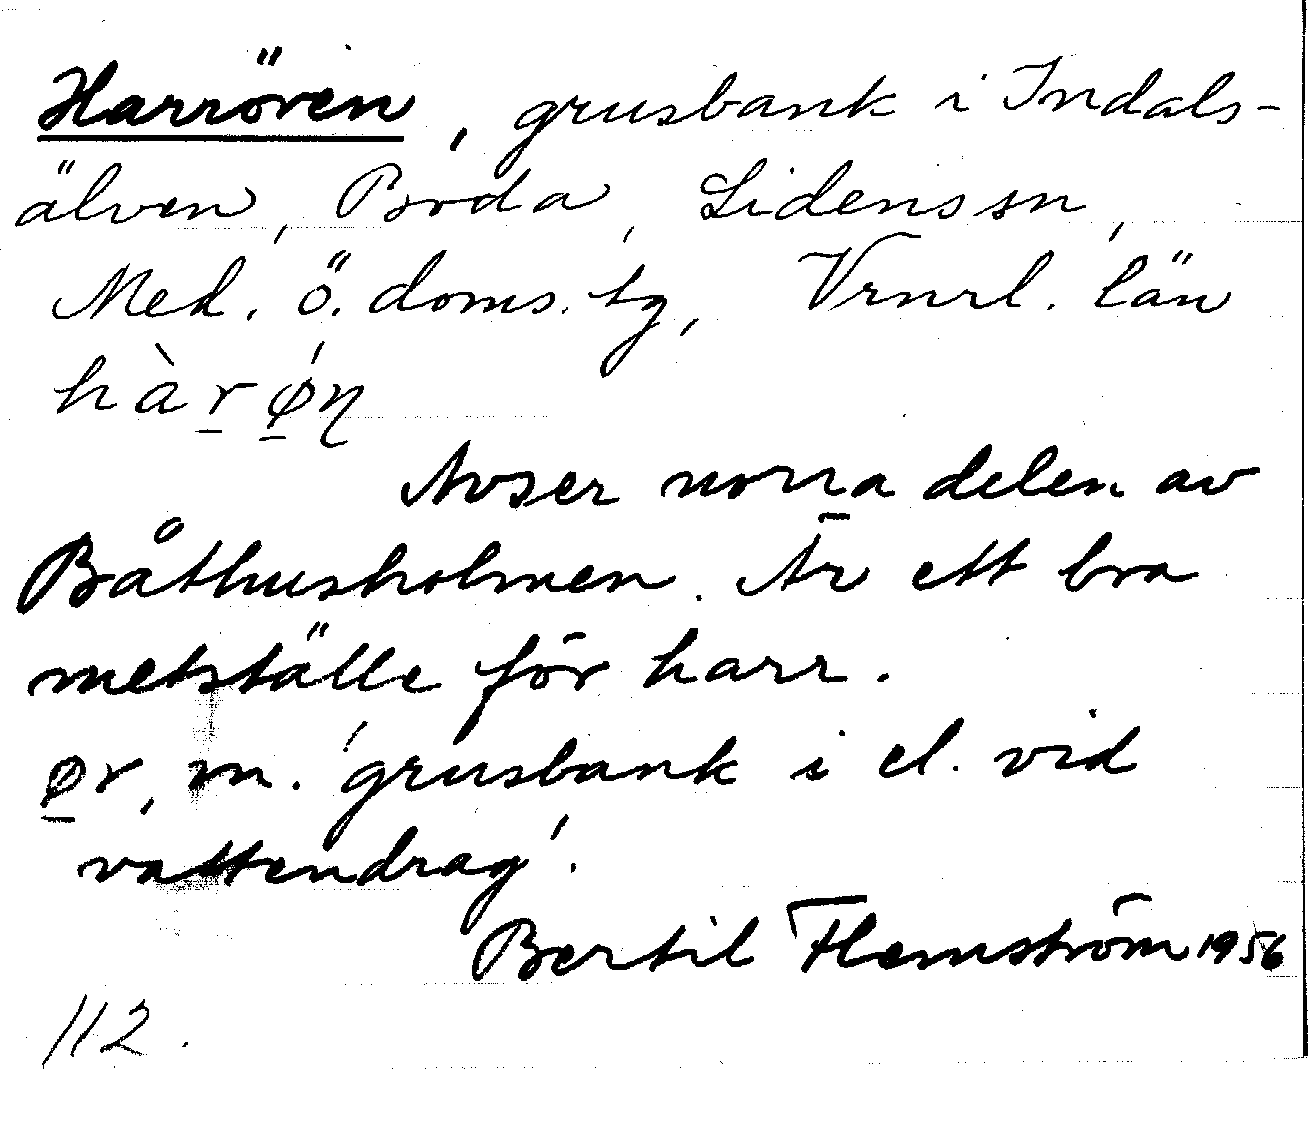 Harrören, grusbank i Indals-
älven, Boda, Lidens sn,
Med. ö. doms. tg, Vrnrl. län
hàr̲ǿ̲ŋ
Avser norra delen av
Båthusholmen. Är ett bra
metställe för harr.
ø̲r, m. 'grusbank i el. vid
vattendrag'.
Bertil Flemström 1956
112.